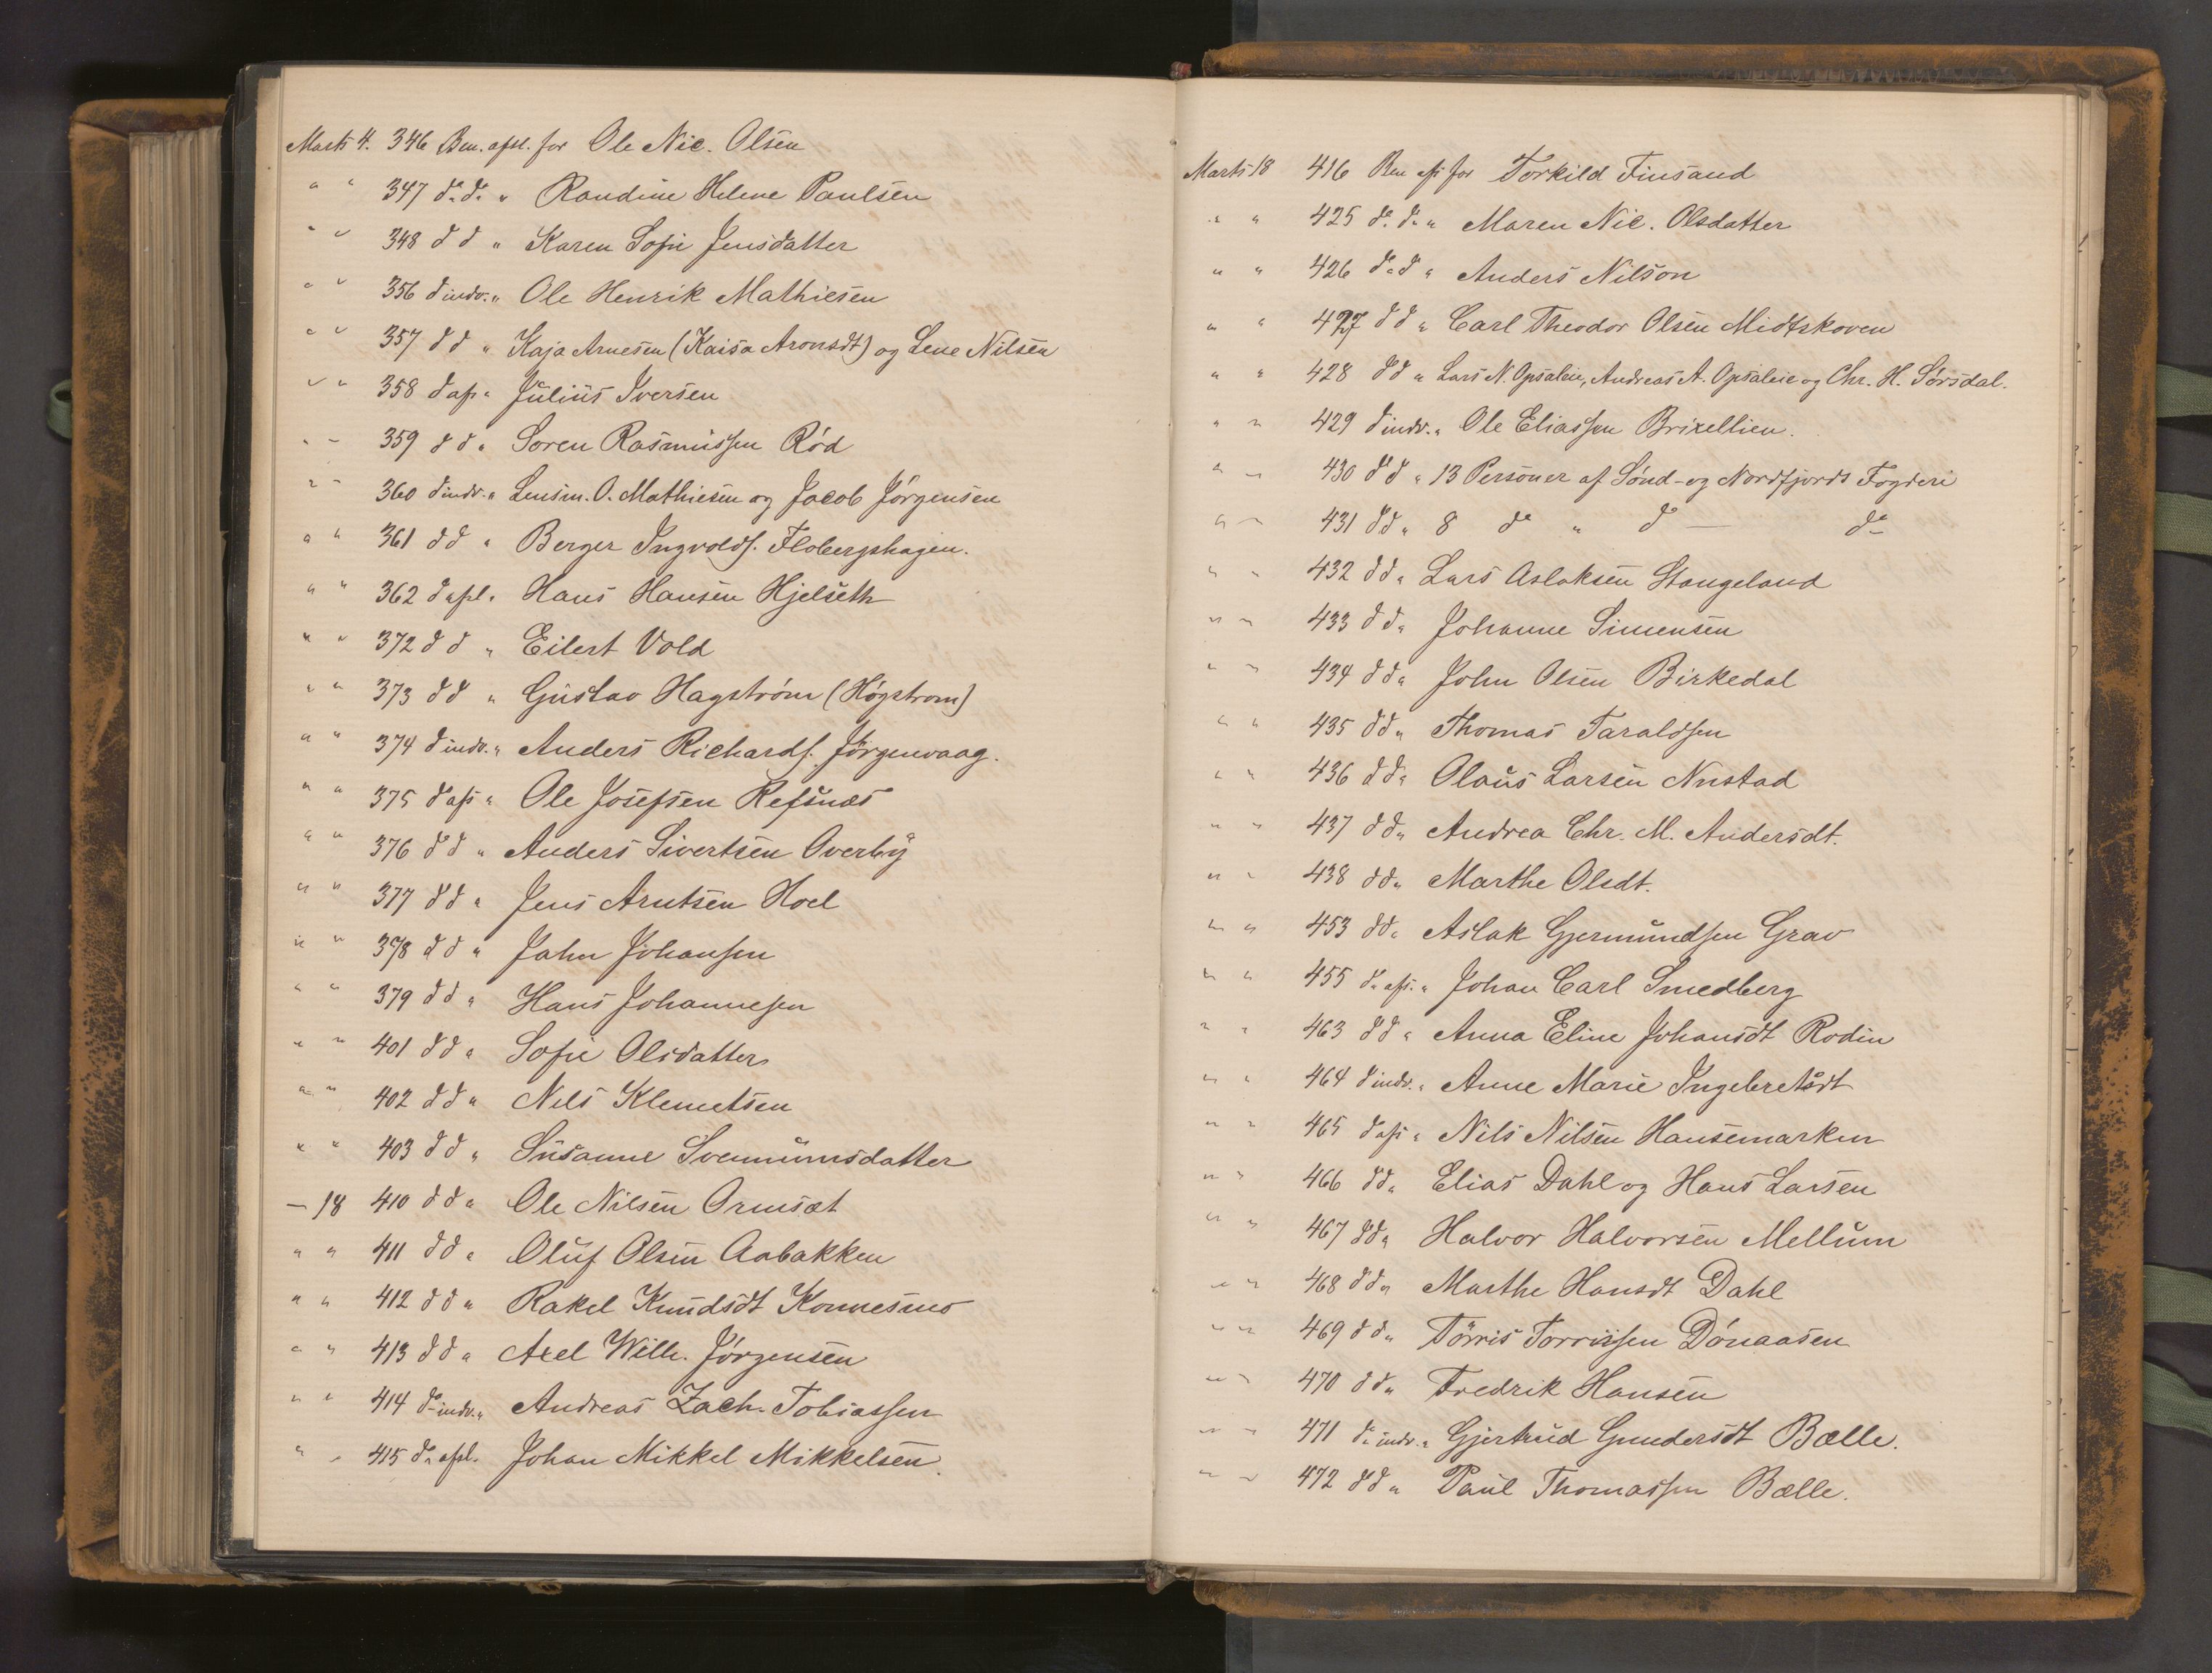 Marts 4. 346 Ben. afsl. for Ole Nic. Olsen
" " 347 do. do. " Randine Helene Paulsen
" " 348 d d " Karen Sofie Jensdatter
" " 356 d indv. " Ole Henrik Mathiesen
" " 357 d d " Kaja Arnesen (Kaisa Aronsdt) og Lene Nilsen
" " 358 d afs " Julius Iversen
" " 359 d d " Soren Rasmussen Rød
" " 360 d indv. " Lensm. O. Mathiesen og Jacob Jørgensen
" " 361 d d " Berger Ingvolds. Flobergshagen.
" " 362 d afsl. " Hans Hansen Hjelseth
" " 372 d d " Eilert Vold
" " 373 d d " Gustav Hagstrøm (Høgstrom)
" " 374 d indv. " Anders Richards. Jörgenvaag.
" " 375 d afs " Ole Josefsen Refsnæs
" " 376 d d " Anders Sivertsen Overby
" " 377 d d " Jens Arntsen Hoel
" " 378 d d " Jahn Johansen
" " 379 d d " Hans Johannesen
" " 401 d d " Sofie Olsdatter
" " 402 d d " Nils Klemetsen
" " 403 d d " Susanne Svennumsdatter
— 18 410 d d " Ole Nilsen Ormsæt
" " 411 d d " Oluf Olsen Aabakken
" " 412 d d " Rakel Knudsdt Konnesmo
" " 413 d d " Axel Wilh. Jørgensen
" " 414 do indv. " Andreas Zach. Tobiassen
" " 415 do afsl. Johan Mikkel Mikkelsen.
Marts 18 416 Ben afs for Torkild Finsand
" " 425 do. do. " Maren Nic. Olsdatter
" " 426 do d " Anders Nilson
" " 427 d d " Carl Theodor Olsen Midtskoven
" " 428 d d " Lars N. Opsaleie, Andreas A. Opsaleie og Chr. H. Sørsdal.
" " 429 d indv. " Ole Eliassen Brixellien.
" " 430 d d " 13 Personer af Sønd- og Nordfjords Fogderi
" " 431 d d " 8 do " do — do
" " 432 d d " Lars Aslaksen Stangeland
" " 433 d d " Johanne Simensen
" " 434 d d " John Olsen Birkedal
" " 435 d d " Thomas Taraldsen
" " 436 d d " Olaus Larsen Nustad
" " 437 d d " Andrea Chr. M. Andersdt.
" " 438 d d " Marthe Olsdt.
" " 453 d d " Aslak Gjermundsen Grav
" " 455 do afs. " Johan Carl Smedberg
" " 463 d d " Anna Eline Johansdt Rodin
" " 464 d indv. " Anne Marie Ingebretsdt
" " 465 d afs " Nils Nilsen Hansemarken
" " 466 d d " Elias Dahl og Hans Larsen
" " 467 d d " Halvor Halvorsen Mellum
" " 468 d d " Marthe Hansdt Dahl
" " 469 d d " Törris Torrissen Dønaasen
" " 470 d d " Fredrik Hansen
" " 471 do indv. " Gjertrud Gundersdt Bælle.
" " 472 d d " Paul Thomassen Bælle.